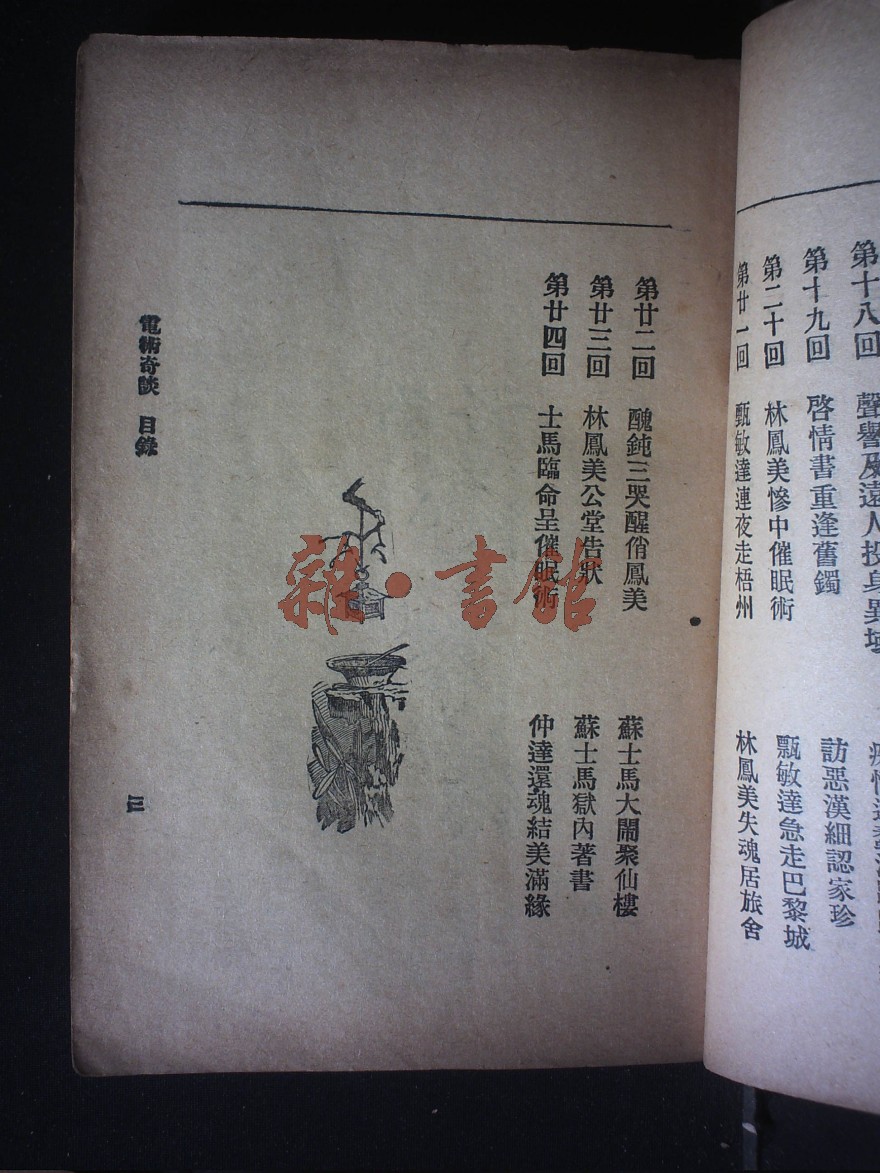 第十八回　聲譽及遠人投身異域
第十九回　啓情書重逢舊鐲　訪惡漢細認家珍
第二十回　林鳳美慘中催眠術　甄敏達急走巴黎城
第廿一回　甄敏達連夜走梧州　林鳳美失魂居旅舍
第廿二回　醜鈍三哭醒俏鳳美　蘇士馬大鬧聚仙樓
第廿三回　林鳳美公堂告狀　蘇士馬獄內著書
第廿四回　士馬臨命呈催眠術　仲達還魂結美滿緣
電術奇談　目錄
三
雜·書館